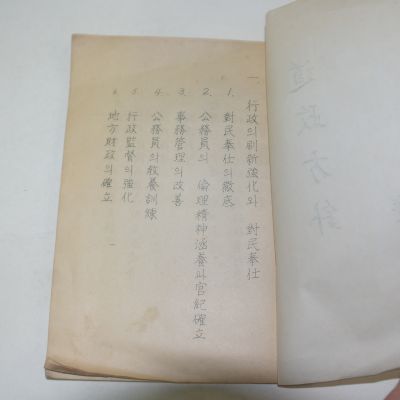 一. 行政의 刷新强化와 對民奉仕
1. 對民奉仕의 徹底
2. 公務員의 倫理精神涵養과 官紀確立
3. 事務管理의 改善
4. 公務員의 敎養訓練
5. 行政監督의 强化
6. 地方財政의 確立
道政方針